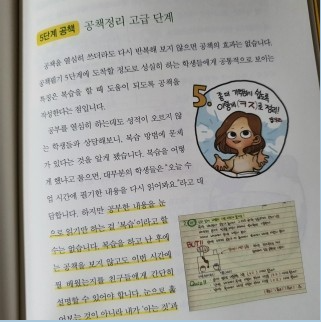 5단계 공책 공책정리 고급 단계
공책을 열심히 쓰더라도 다시 반복해 보지 않으면 공책의 효과는 없습니다.
공책필기 5단계에 도착할 정도로 성실히 하는 학생들에게 공통적으로 보이는
특징은 복습을 할 때 도움이 되도록 공책을
작성한다는 점입니다.
공부를 열심히 하는데도 성적이 오르지 않
는 학생들과 상담해보니, 복습 방법에 문제
가 있다는 것을 알게 됐습니다. 복습을 어떻
게 했냐고 물으면, 대부분의 학생들은 "오늘 수
업 시간에 필기한 내용을 다시 읽어봐요."라고 대
답합니다. 하지만 공부한 내용을 눈
으로 읽기만 하는 걸 '복습'이라고 할
수는 없습니다. 복습을 하고 난 후에
는 공책을 보지 않고도 이번 시간에
뭘 배웠는지를 친구들에게 간단히
설명할 수 있어야 합니다. 눈으로 훑
어보는 것이 아니라 내가 '아는 것'과
5
BUT!!